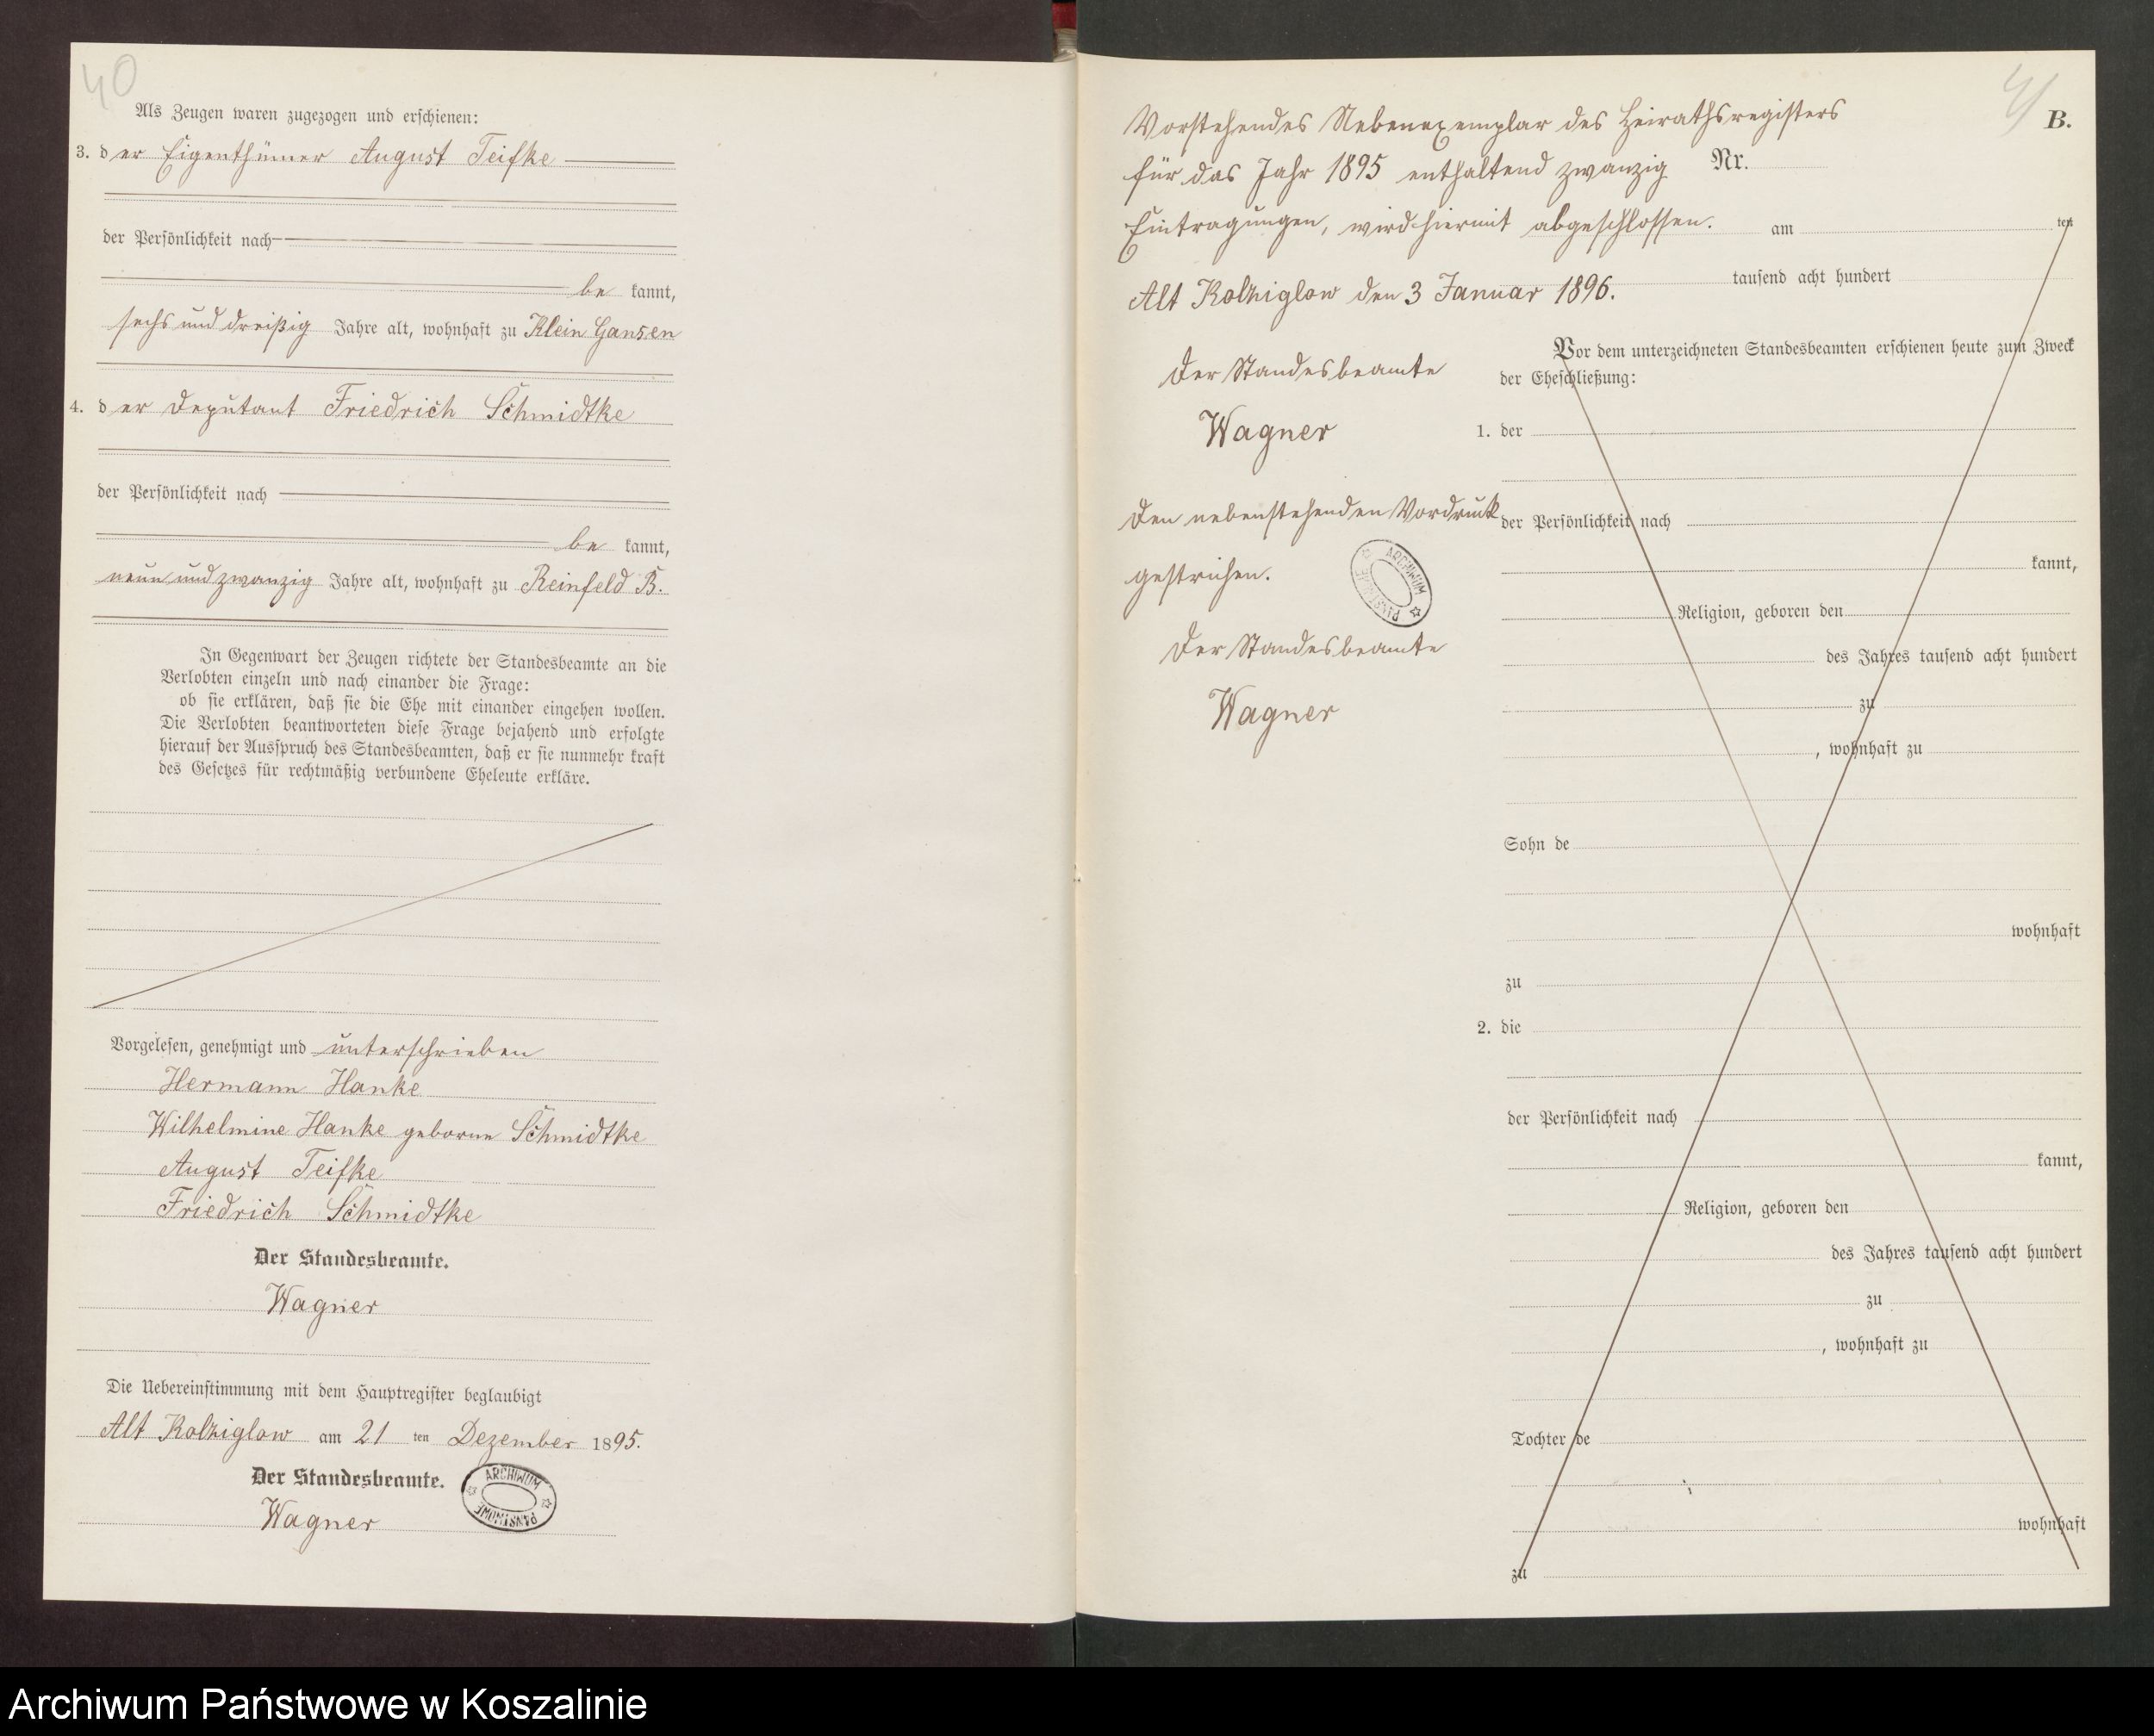 40
Als Zeugen waren zugezogen und erschienen:
3. der Eigenthümer August Teifke
der Persönlichkeit nach
be kannt,
sechs und dreißig Jahre alt, wohnhaft zu Klein Gansen
4. der Deputant Friedrich Schmidtke
der Persönlichkeit nach
be kannt,
neun und zwanzig Jahre alt, wohnhaft zu Reinfeld B.
In Gegenwart der Zeugen richtete der Standesbeamte an die
Verlobten einzeln und nach einander die Frage:
ob sie erklären, daß sie die Ehe mit einander eingehen wollen.
Die Verlobten beantworteten diese Frage bejahend und erfolgte
hierauf der Ausspruch des Standesbeamten, daß er sie nunmehr kraft
des Gesetzes für rechtmäßig verbundene Eheleute erkläre.
Vorgelesen, genehmigt und unterschrieben
Hermann Hanke
Wilhelmine Hanke geborne Schmidtke
August Teifke
Friedrich Schmidtke
Der Standesbeamte.
Wagner
Die Uebereinstimmung mit dem Hauptregister beglaubigt
Alt Kolziglow am 21 ten Dezember 1895.
Der Standesbeamte.
Wagner
ARCHIWUM PAŃSTWOWE
41
B.
Vorstehendes Nebenexemplar des Heirathsregisters
für das Jahr 1895 enthaltend zwanzig
Eintragungen, wird hiermit abgeschlossen.
Alt Kolziglow den 3 Januar 1896.
Der Standesbeamte
Wagner
Den nebenstehenden Vordruck
gestrichen.
Der Standesbeamte
Wagner
ARCHIWUM PAŃSTWOWE
Nr.
am ten
tausend acht hundert
Vor dem unterzeichneten Standesbeamten erschienen heute zum Zweck
der Eheschließung:
1. der
der Persönlichkeit nach
kannt,
Religion, geboren den
des Jahres tausend acht hundert
zu
, wohnhaft zu
Sohn de
wohnhaft
zu
2. die
der Persönlichkeit nach
kannt,
Religion, geboren den
des Jahres tausend acht hundert
zu
, wohnhaft zu
Tochter de
wohnhaft
zu
Archiwum Państwowe w Koszalinie